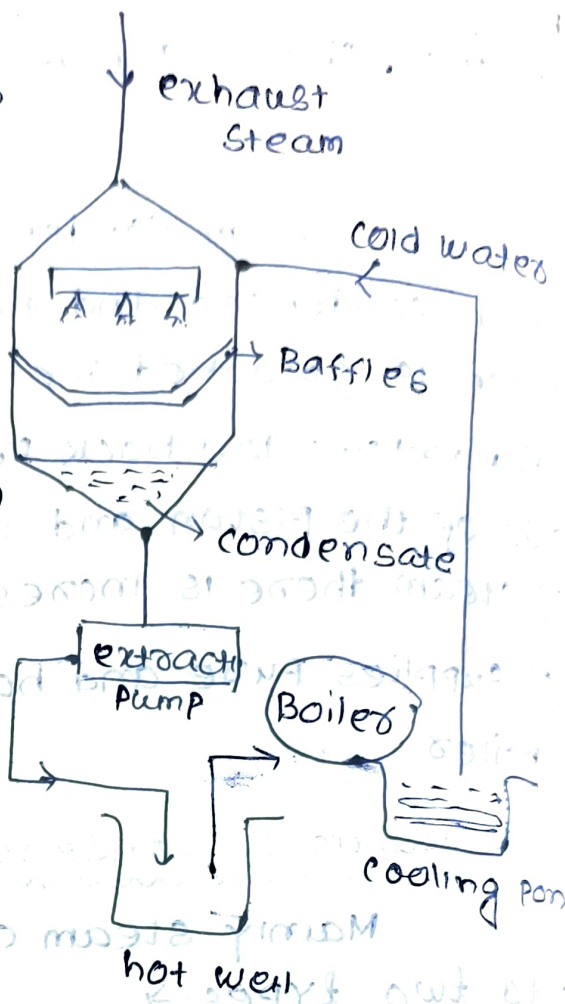 exhaust
steam
cold water
Baffles
condensate
extract
Pump
Boiler
cooling pon
hot well